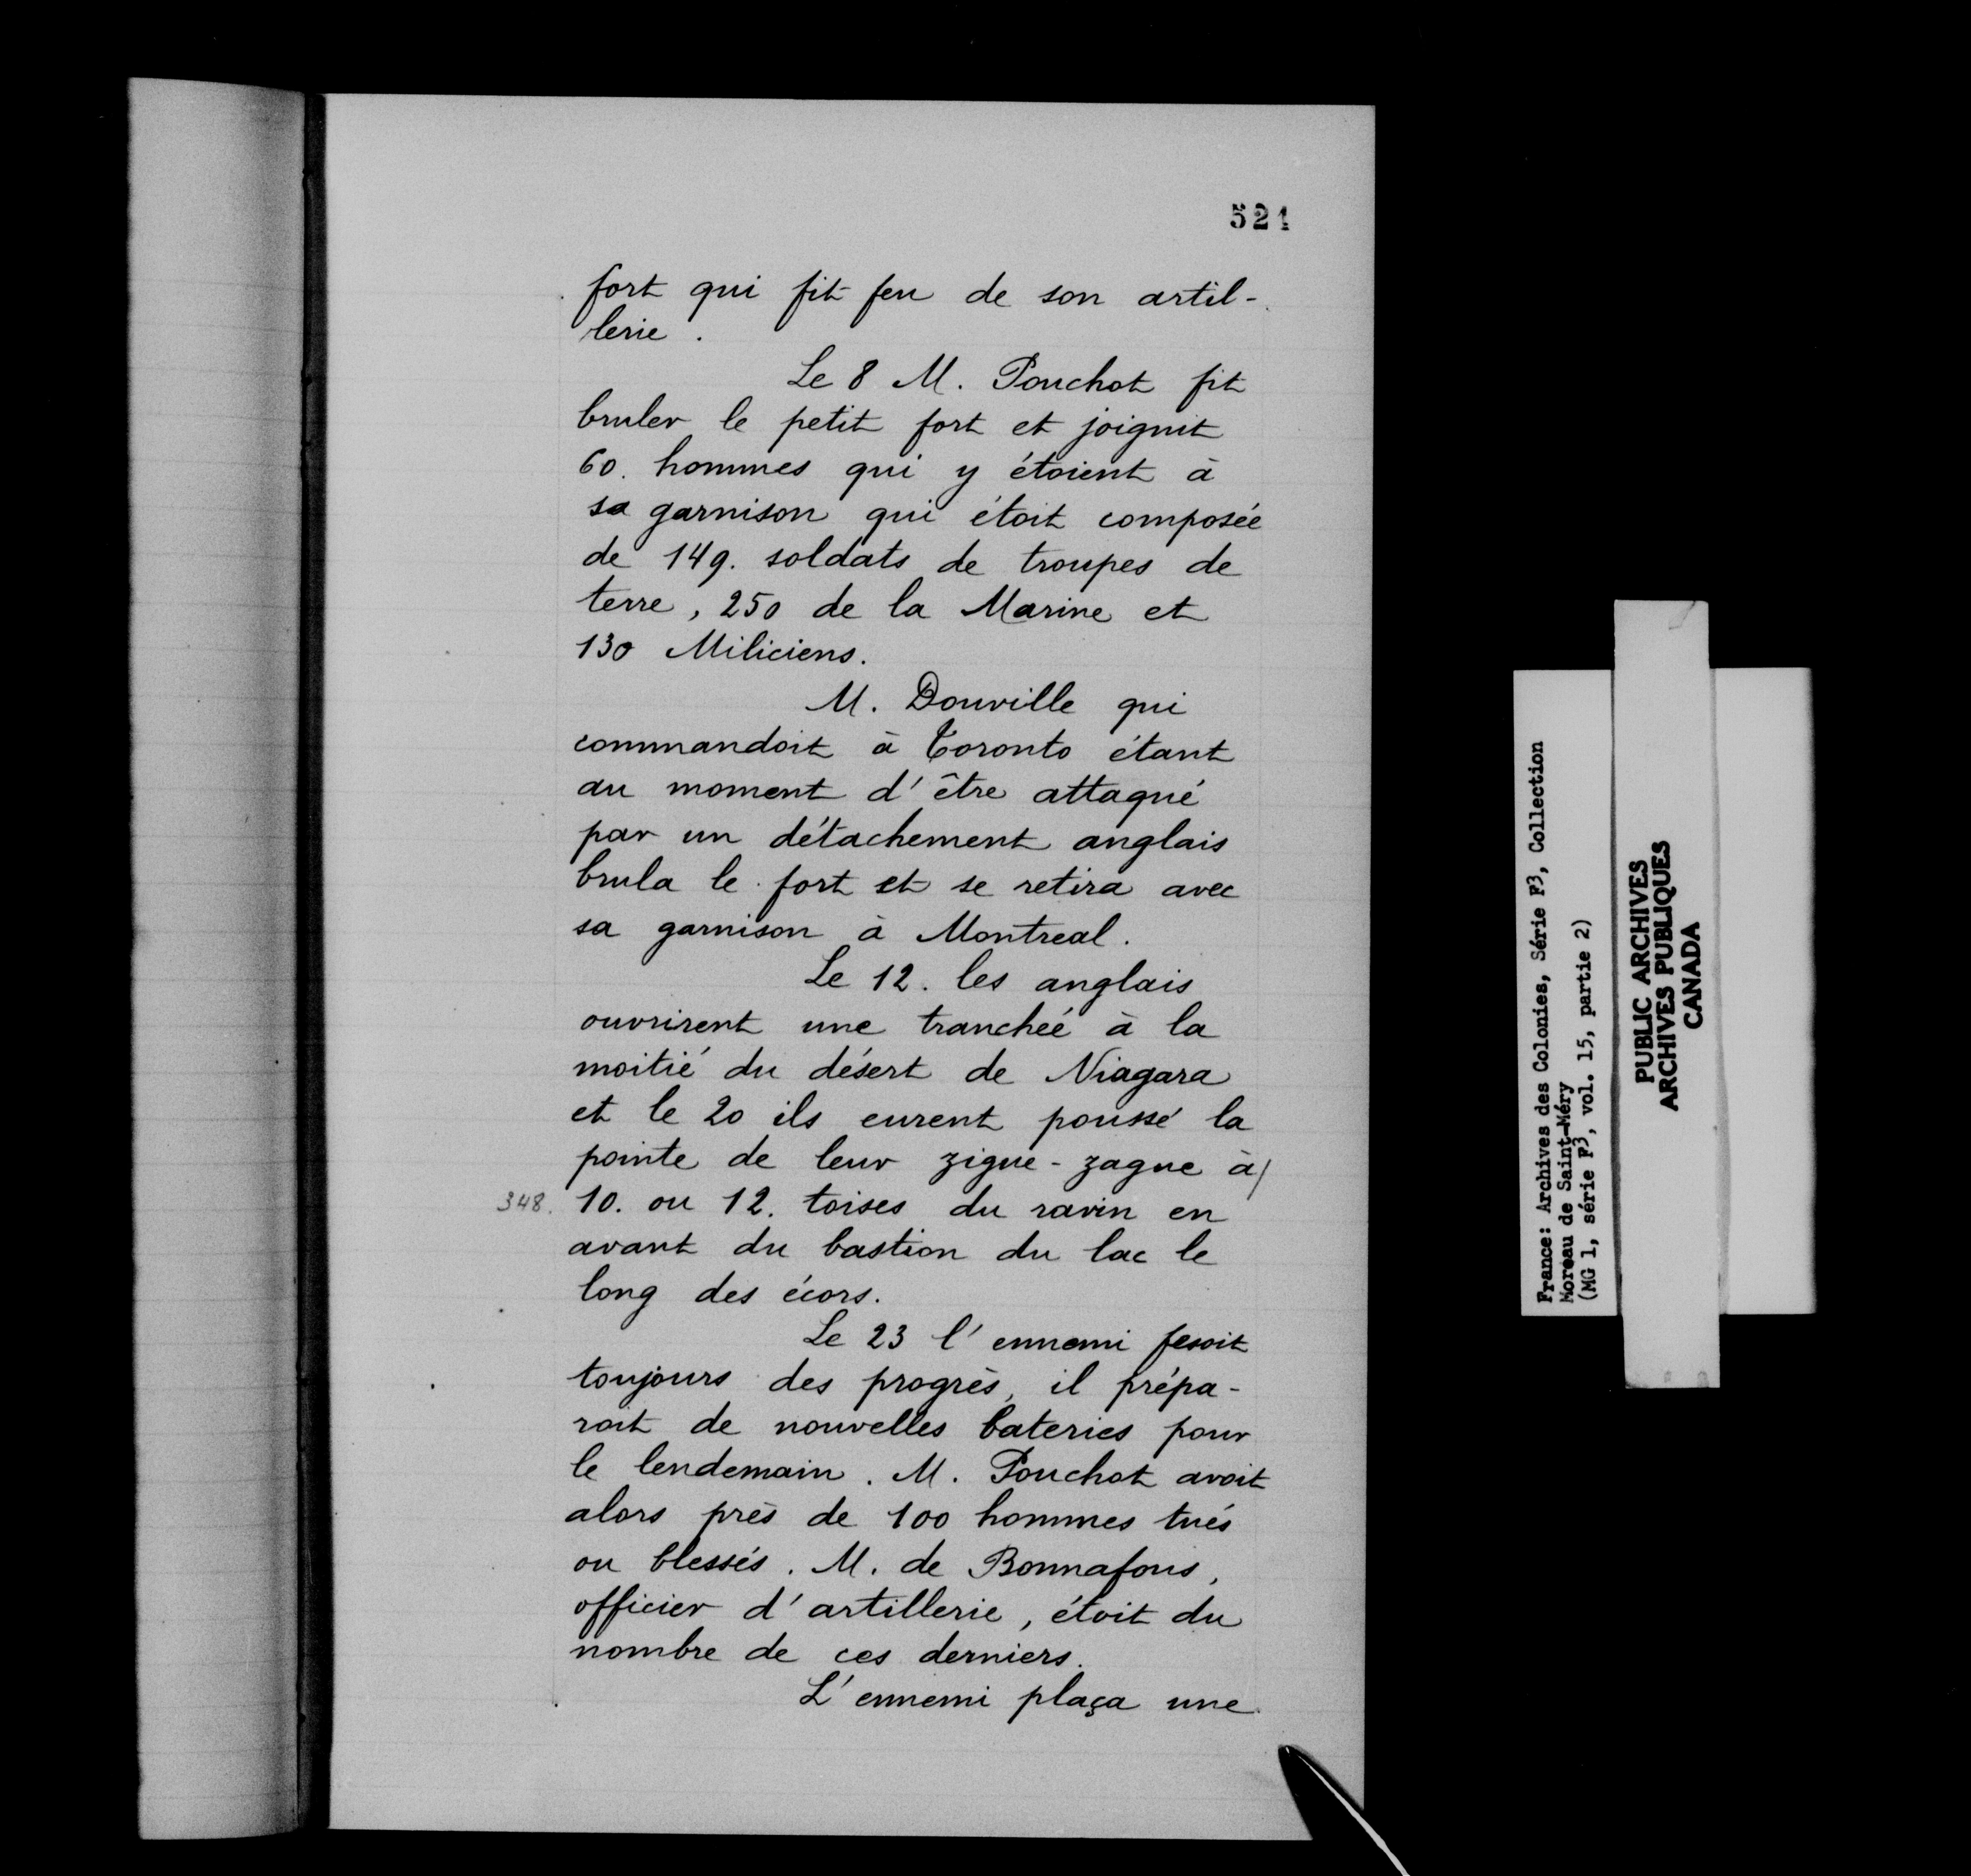 524
fort qui fit feu de son artil-
lerie.
Le 8 M. Pouchot fit
bruler le petit fort et joignit
60. hommes qui y étoient à
sa garnison qui étoit composée
de 149. soldats de troupes de
terre, 250 de la Marine et
130 Miliciens.
M. Douville qui
commandoit à Toronto étant
au moment d'être attaqué
par un détachement anglais
brula le fort et se retira avec
sa garnison à Montreal.
Le 12. les anglais
ouvrirent une tranchée à la
moitié du désert de Niagara
et le 20 ils eurent poussé la
pointe de leur zigue-zague à/
348. 10. ou 12. toises du ravin en
avant du bastion du lac le
long des écors.
Le 23 l'ennemi fesoit
toujours des progrès, il prépa-
roit de nouvelles bateries pour
le lendemain. M. Pouchot avoit
alors près de 100 hommes tués
ou blessés. M. de Bonnafous,
officier d'artillerie, étoit du
nombre de ces derniers.
L'ennemi plaça une
France: Archives des Colonies, Série F3, Collection
Moreau de Saint-Méry
(MG 1, série F3, vol. 15, partie 2)
PUBLIC ARCHIVES
ARCHIVES PUBLIQUES
CANADA